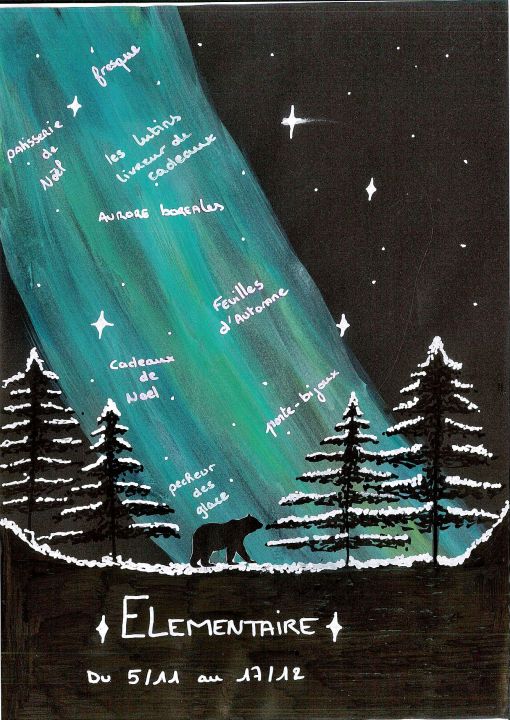 fresque
patisserie
de
Noël
les lutins
livreur de
cadeaux
AURORE BOREALES
Feuilles
d'Automne
Cadeaux
de
Noel
porte-bijoux
pecheur
des
glace
ELEMENTAIRE
Du 5/11 au 17/12